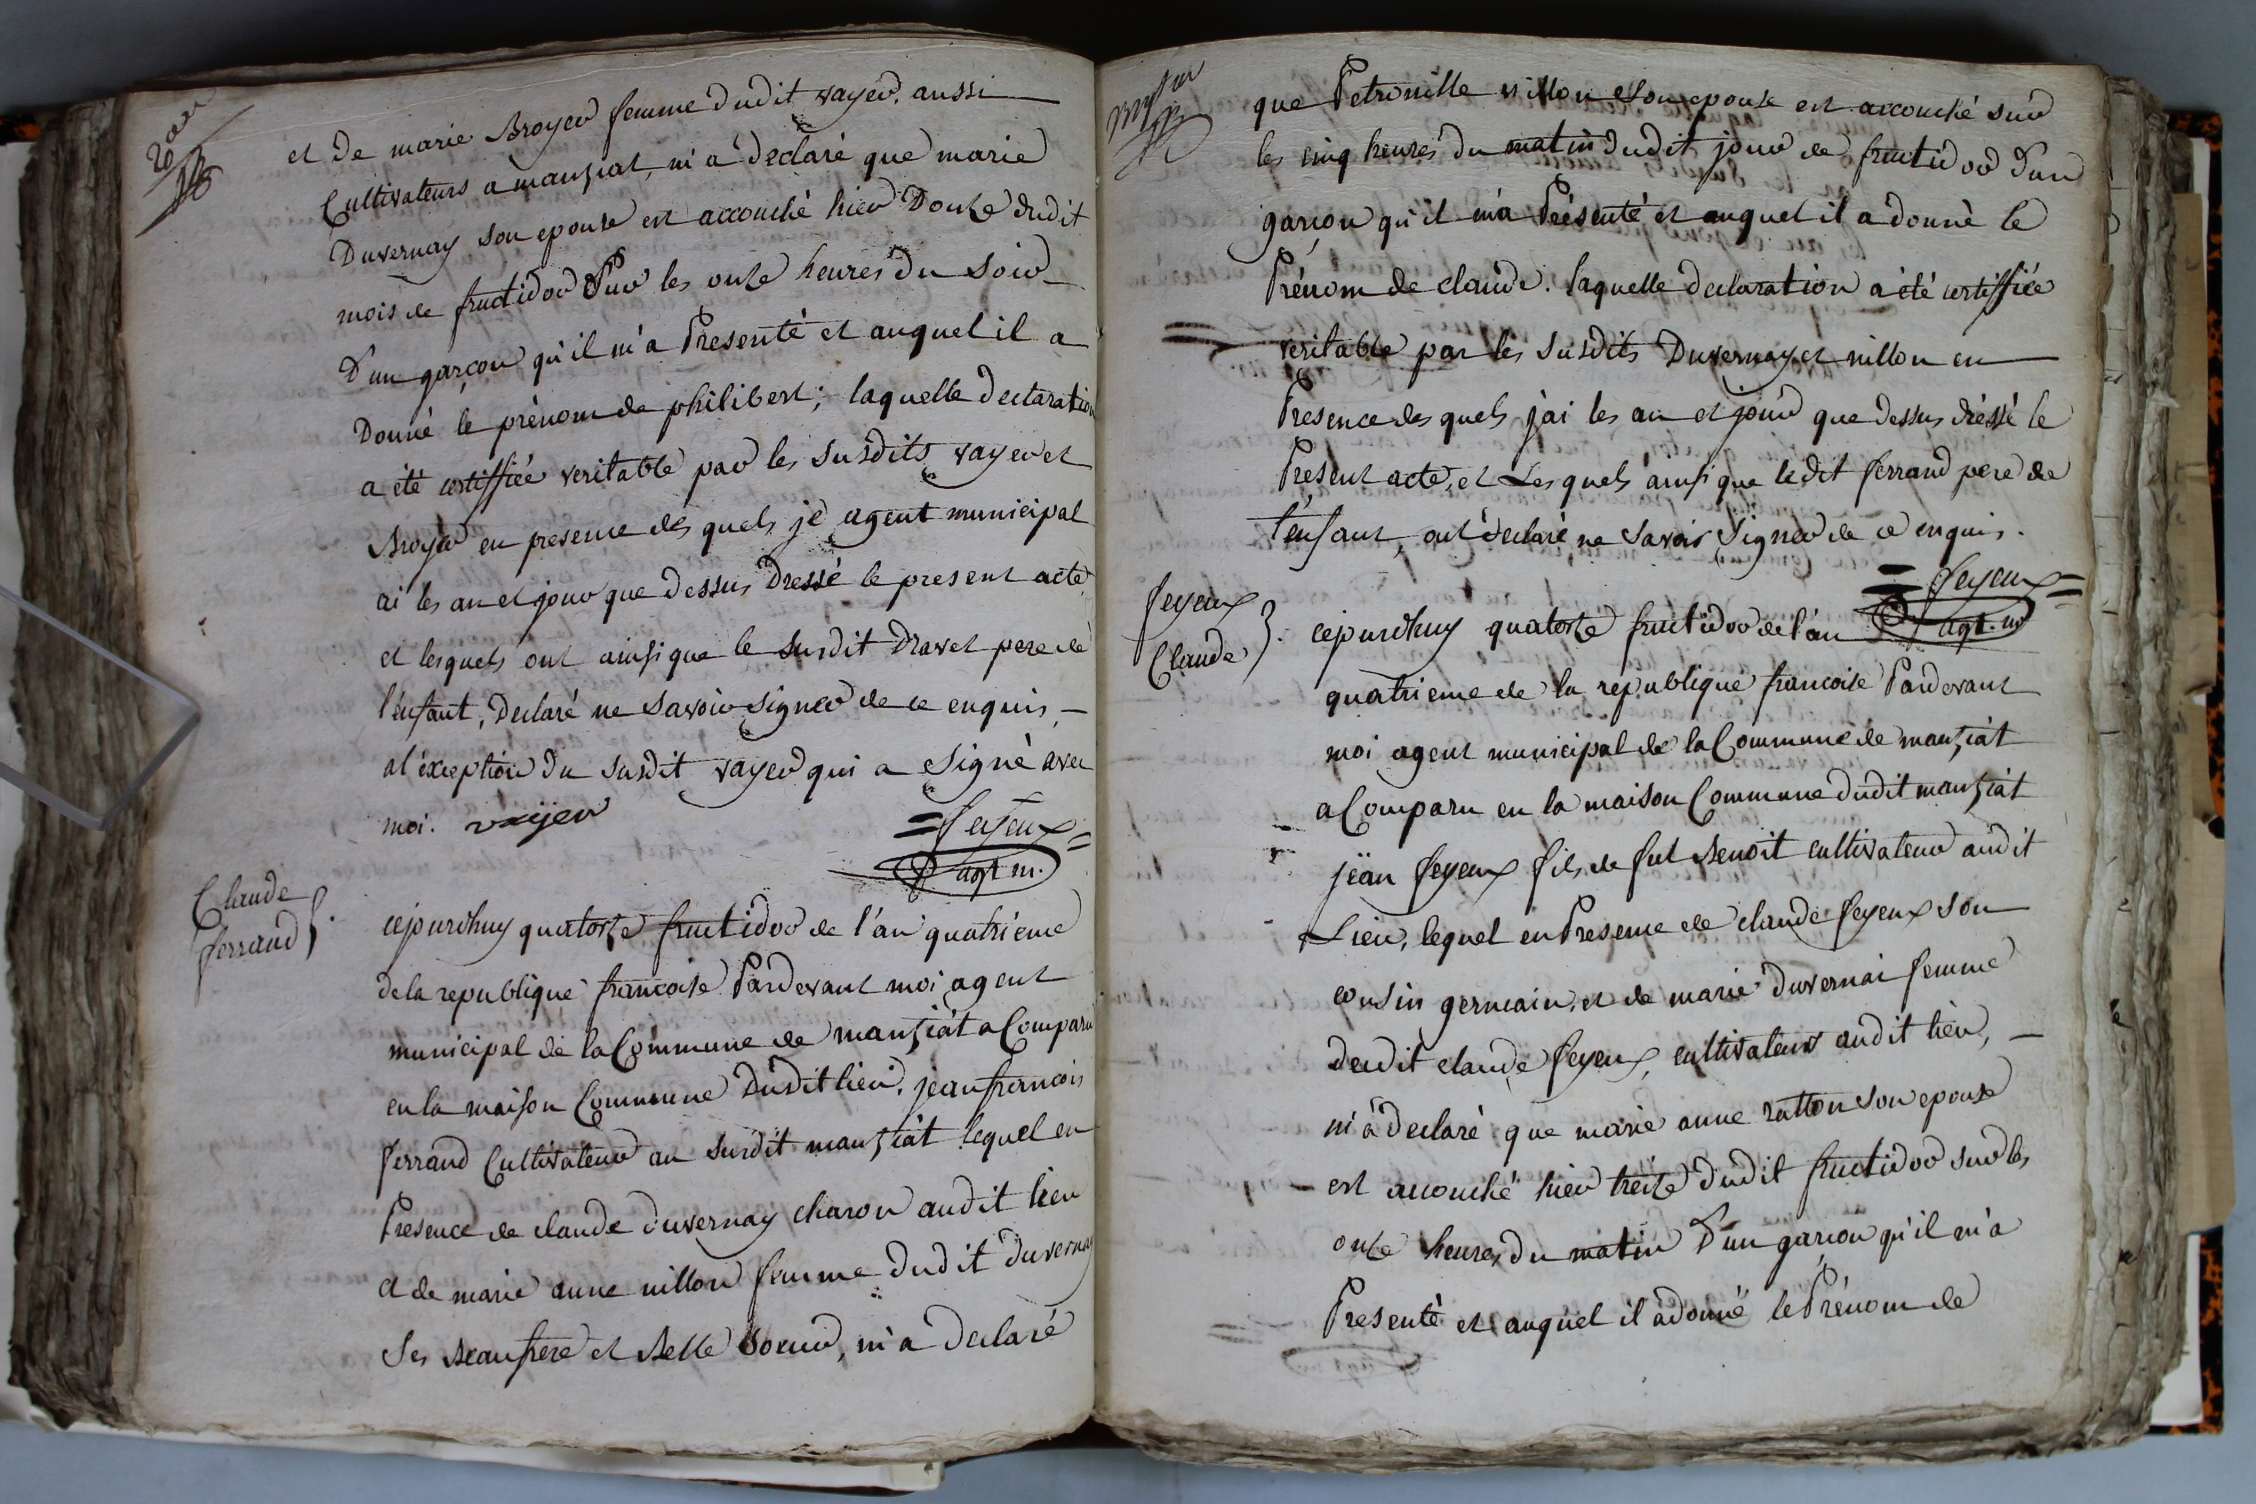 et de marie Broyer femme dudit vayer, aussi
Cultivateurs a manziat, m'a declaré que marie
Duvernay son epouse est accouché hier Douze dudit
mois de fructidor Sur les onze heures du Soir
D'un garçon qu'il m'a Presenté et auquel il a
Donné le prénom de philibert; laquelle declaration
a été certiffiée veritable par les susdits vayer et
Broyer en presence des quels je agent municipal
ai les an et jour que dessus Dressé le present acte
et lesquels ont ainsi que le susdit Dravet pere de
l'enfant, Declaré ne savoir signer de ce enquis,
a l'exception du susdit vayer qui a Signé avec
moi. vayer
feyeux
agt m.
Claude
ferrand
cejourdhuy quatorze fructidor de l'an quatrieme
de la republique françoise Pardevant moi agent
municipal de la Commune de manziat a Comparu
en la maison Commune Dudit lieu, jean françois
ferrand Cultivateur au susdit manziat lequel en
Presence de claude duvernay charon audit lieu
et de marie anne nillon femme dudit Duvernay
Ses Beaufrere et Belle Soeur, m'a declaré
que Petronille nillon son epouse est accouché sur
les cinq heures du matin dudit jour de fructidor D'un
garçon qu'il m'a Présenté et auquel il a donné le
Prénom de claude. laquelle declaration a été certiffiée
veritable par les susdits Duvernay et nillon en
Presence des quels j'ai les an et jour que dessus dréssé le
Present acte, et Les quels ainsi que le dit ferrand pere de
l'enfant, ont declaré ne savoir Signer de ce enquis.
feyeux
agt. m
feyeux
Claude
cejourdhuy quatorze fructidor de l'an
quatrieme de la republique francoise Pardevant
moi agent municipal de la Commune de manziat
a Comparu en la maison Commune dudit manziat
jean feyeux fils de fut Benoit cultivateur audit
Lieu, lequel en Presence de claude feyeux son
cousin germain, et de marie duvernai femme
dudit claude feyeux, cultivateurs audit lieu,
m'a declaré que marie anne ratton son epouse
est accouché hier treize dudit fructidor sur les
onze heures du matin D'un garçon qu'il m'a
Presenté et auquel il a donné le Prénom de